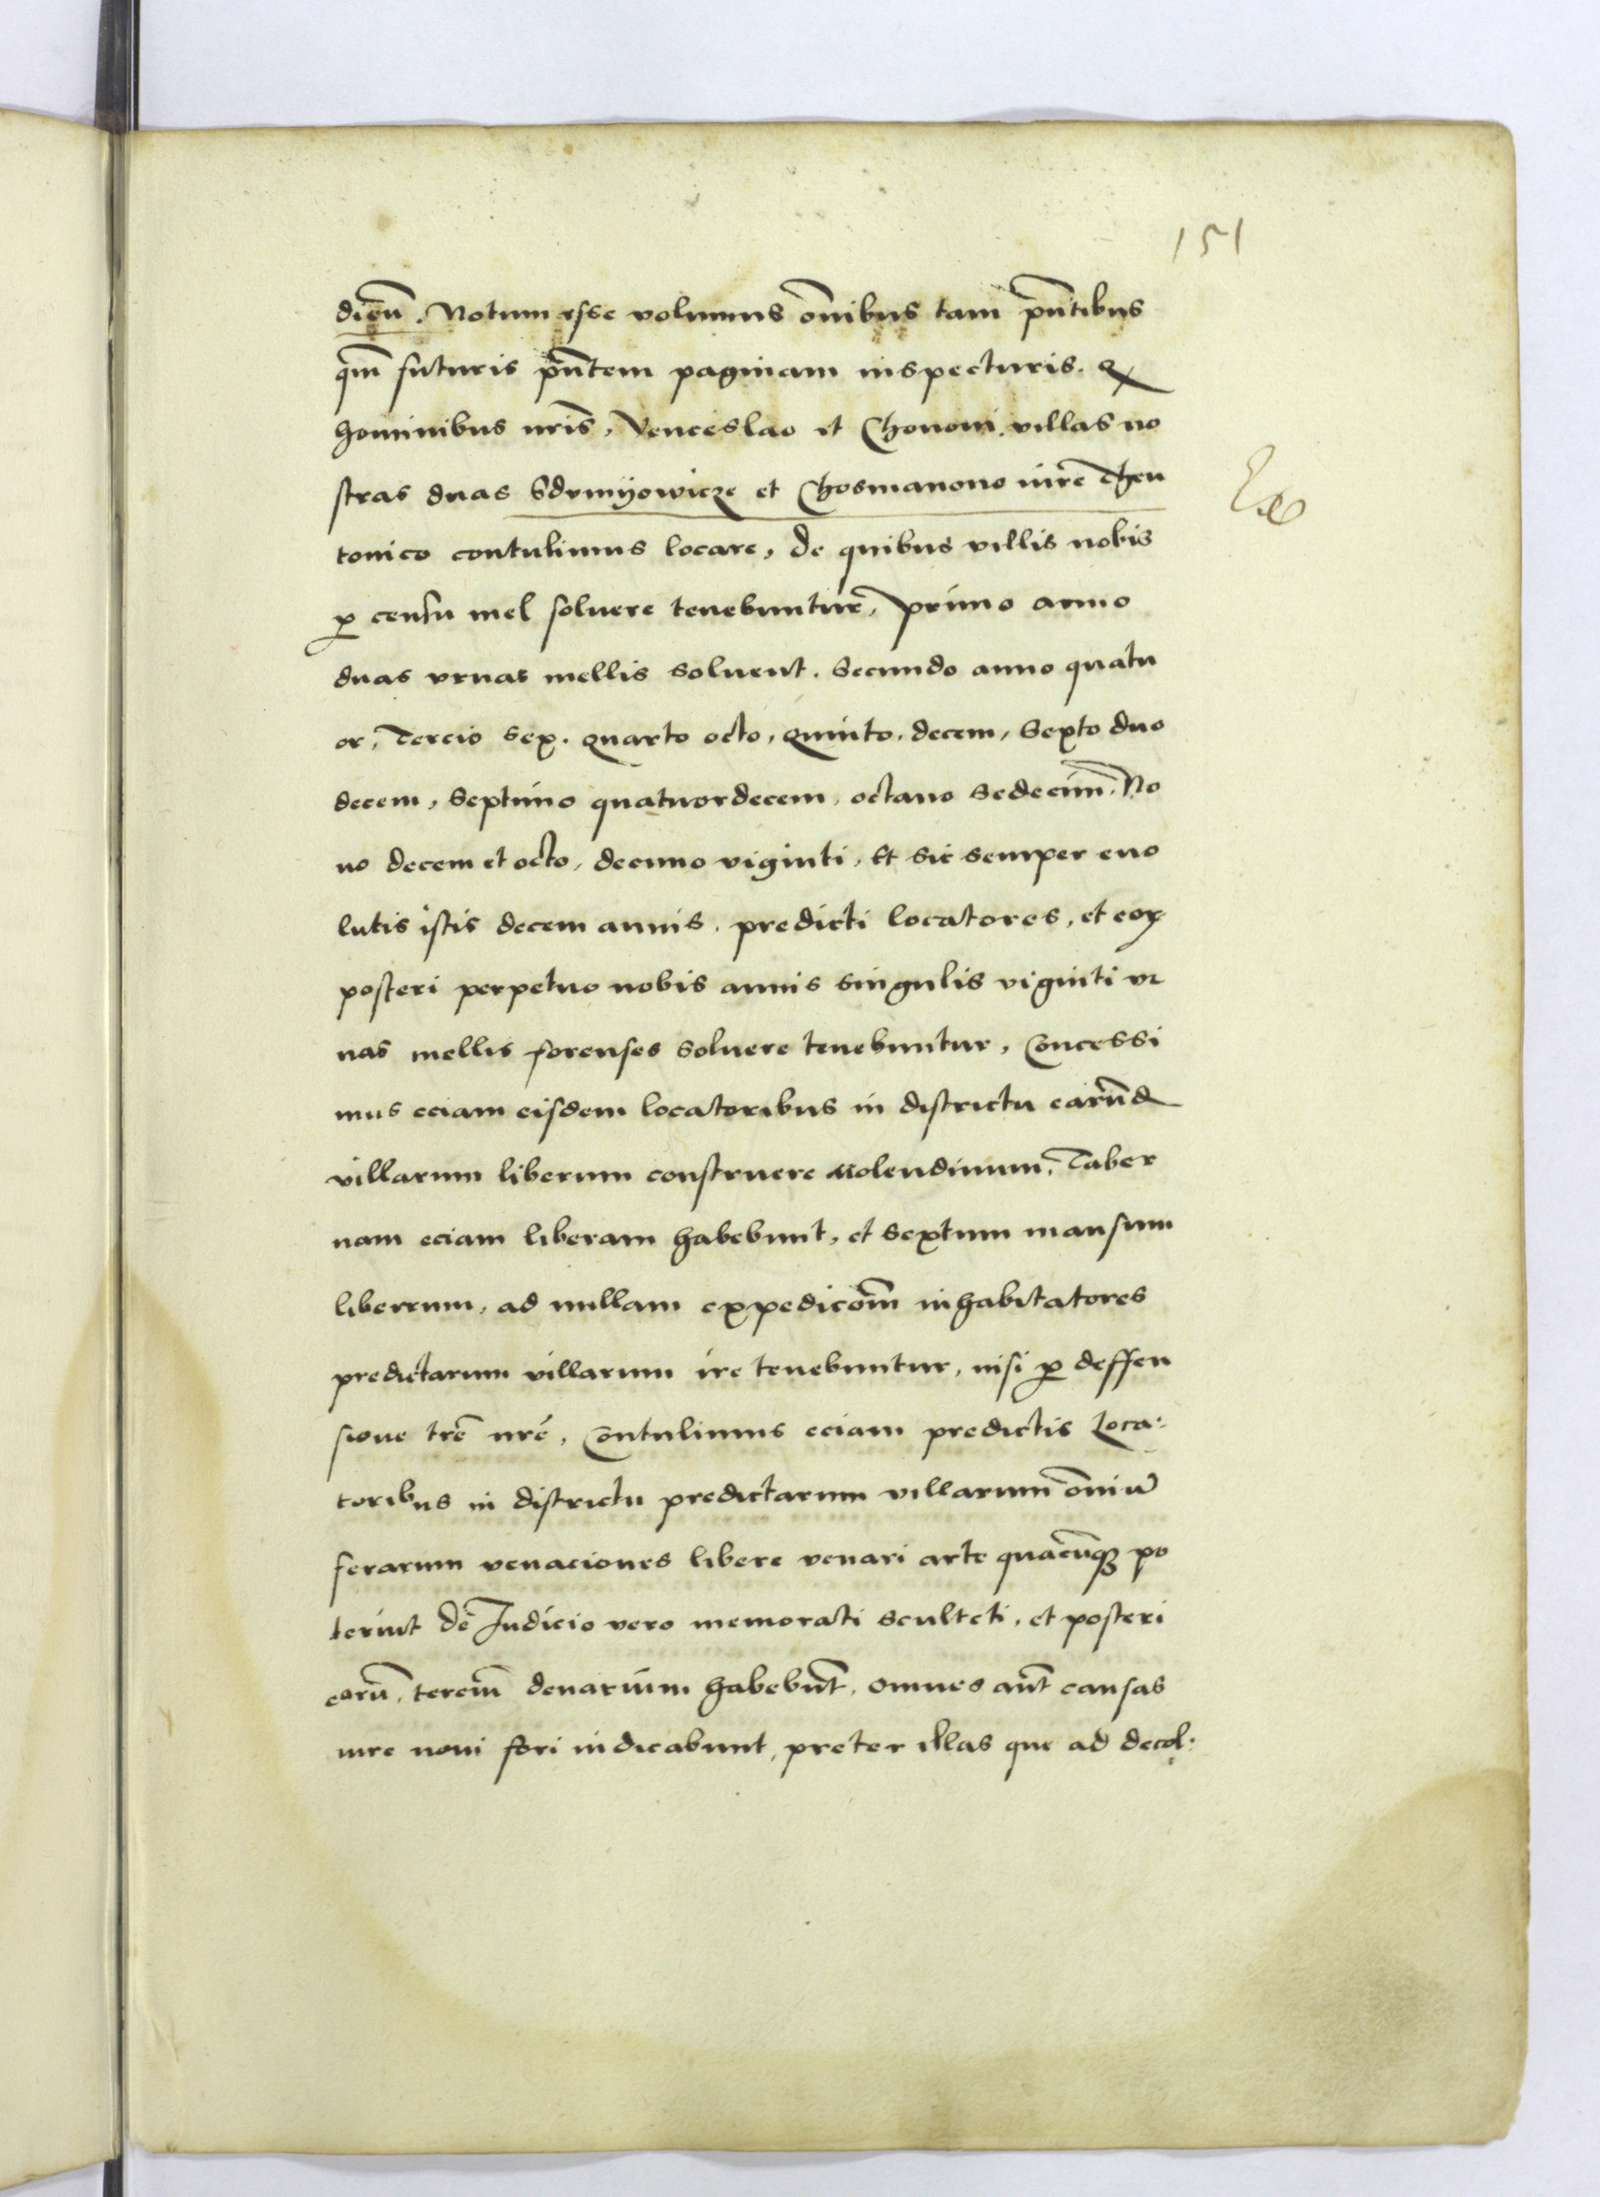 151
dicũ. Notum esse volumus om̃ibus tam pñtibus
qm̃ futuris pñtem paginam inspecturis. Q
hominibus nr̃is, Venceslao et Chononi villas no
stras duas Sdvmyowicze et Chosmanono iure Theu
tonico contulimus locare, de quibus villis nobis
p censu mel soluere tenebuntur, primo anno
duas vrnas mellis soluent. Secundo anno quatu
or, Tercio sex. quarto octo, quinto, decem, Sexto duo
decem, Septimo quatuordecem, octauo Sedecim, No
no decem et octo, decimo viginti, Et sic semper euo
lutis istis decem annis, predicti locatores, et eoꝝ
posteri perpetuo nobis annis singulis viginti vr
nas mellis forenses soluere tenebuntur, Concessi
mus eciam eisdem locatoribus in districtu earũd
villarum liberum construere Molendinum, Taber
nam eciam liberam habebunt, et sextum mansum
liberum, ad nullam expedicõm inhabitatores
predictarum villarum ire tenebuntur, nisi p deffen
sione trẽ nrẽ, Contulimus eciam predictis Loca:
toribus in districtu predictarum villarum om̃iũ
ferarum venaciones libere venari arte quacũqꝫ po
terint De Iudicio vero memorati sculteti, et posteri
eorũ, terciũ denarium habebũt, omnes aũt causas
iure noui fori iudicabunt, preter illas que ad decol: